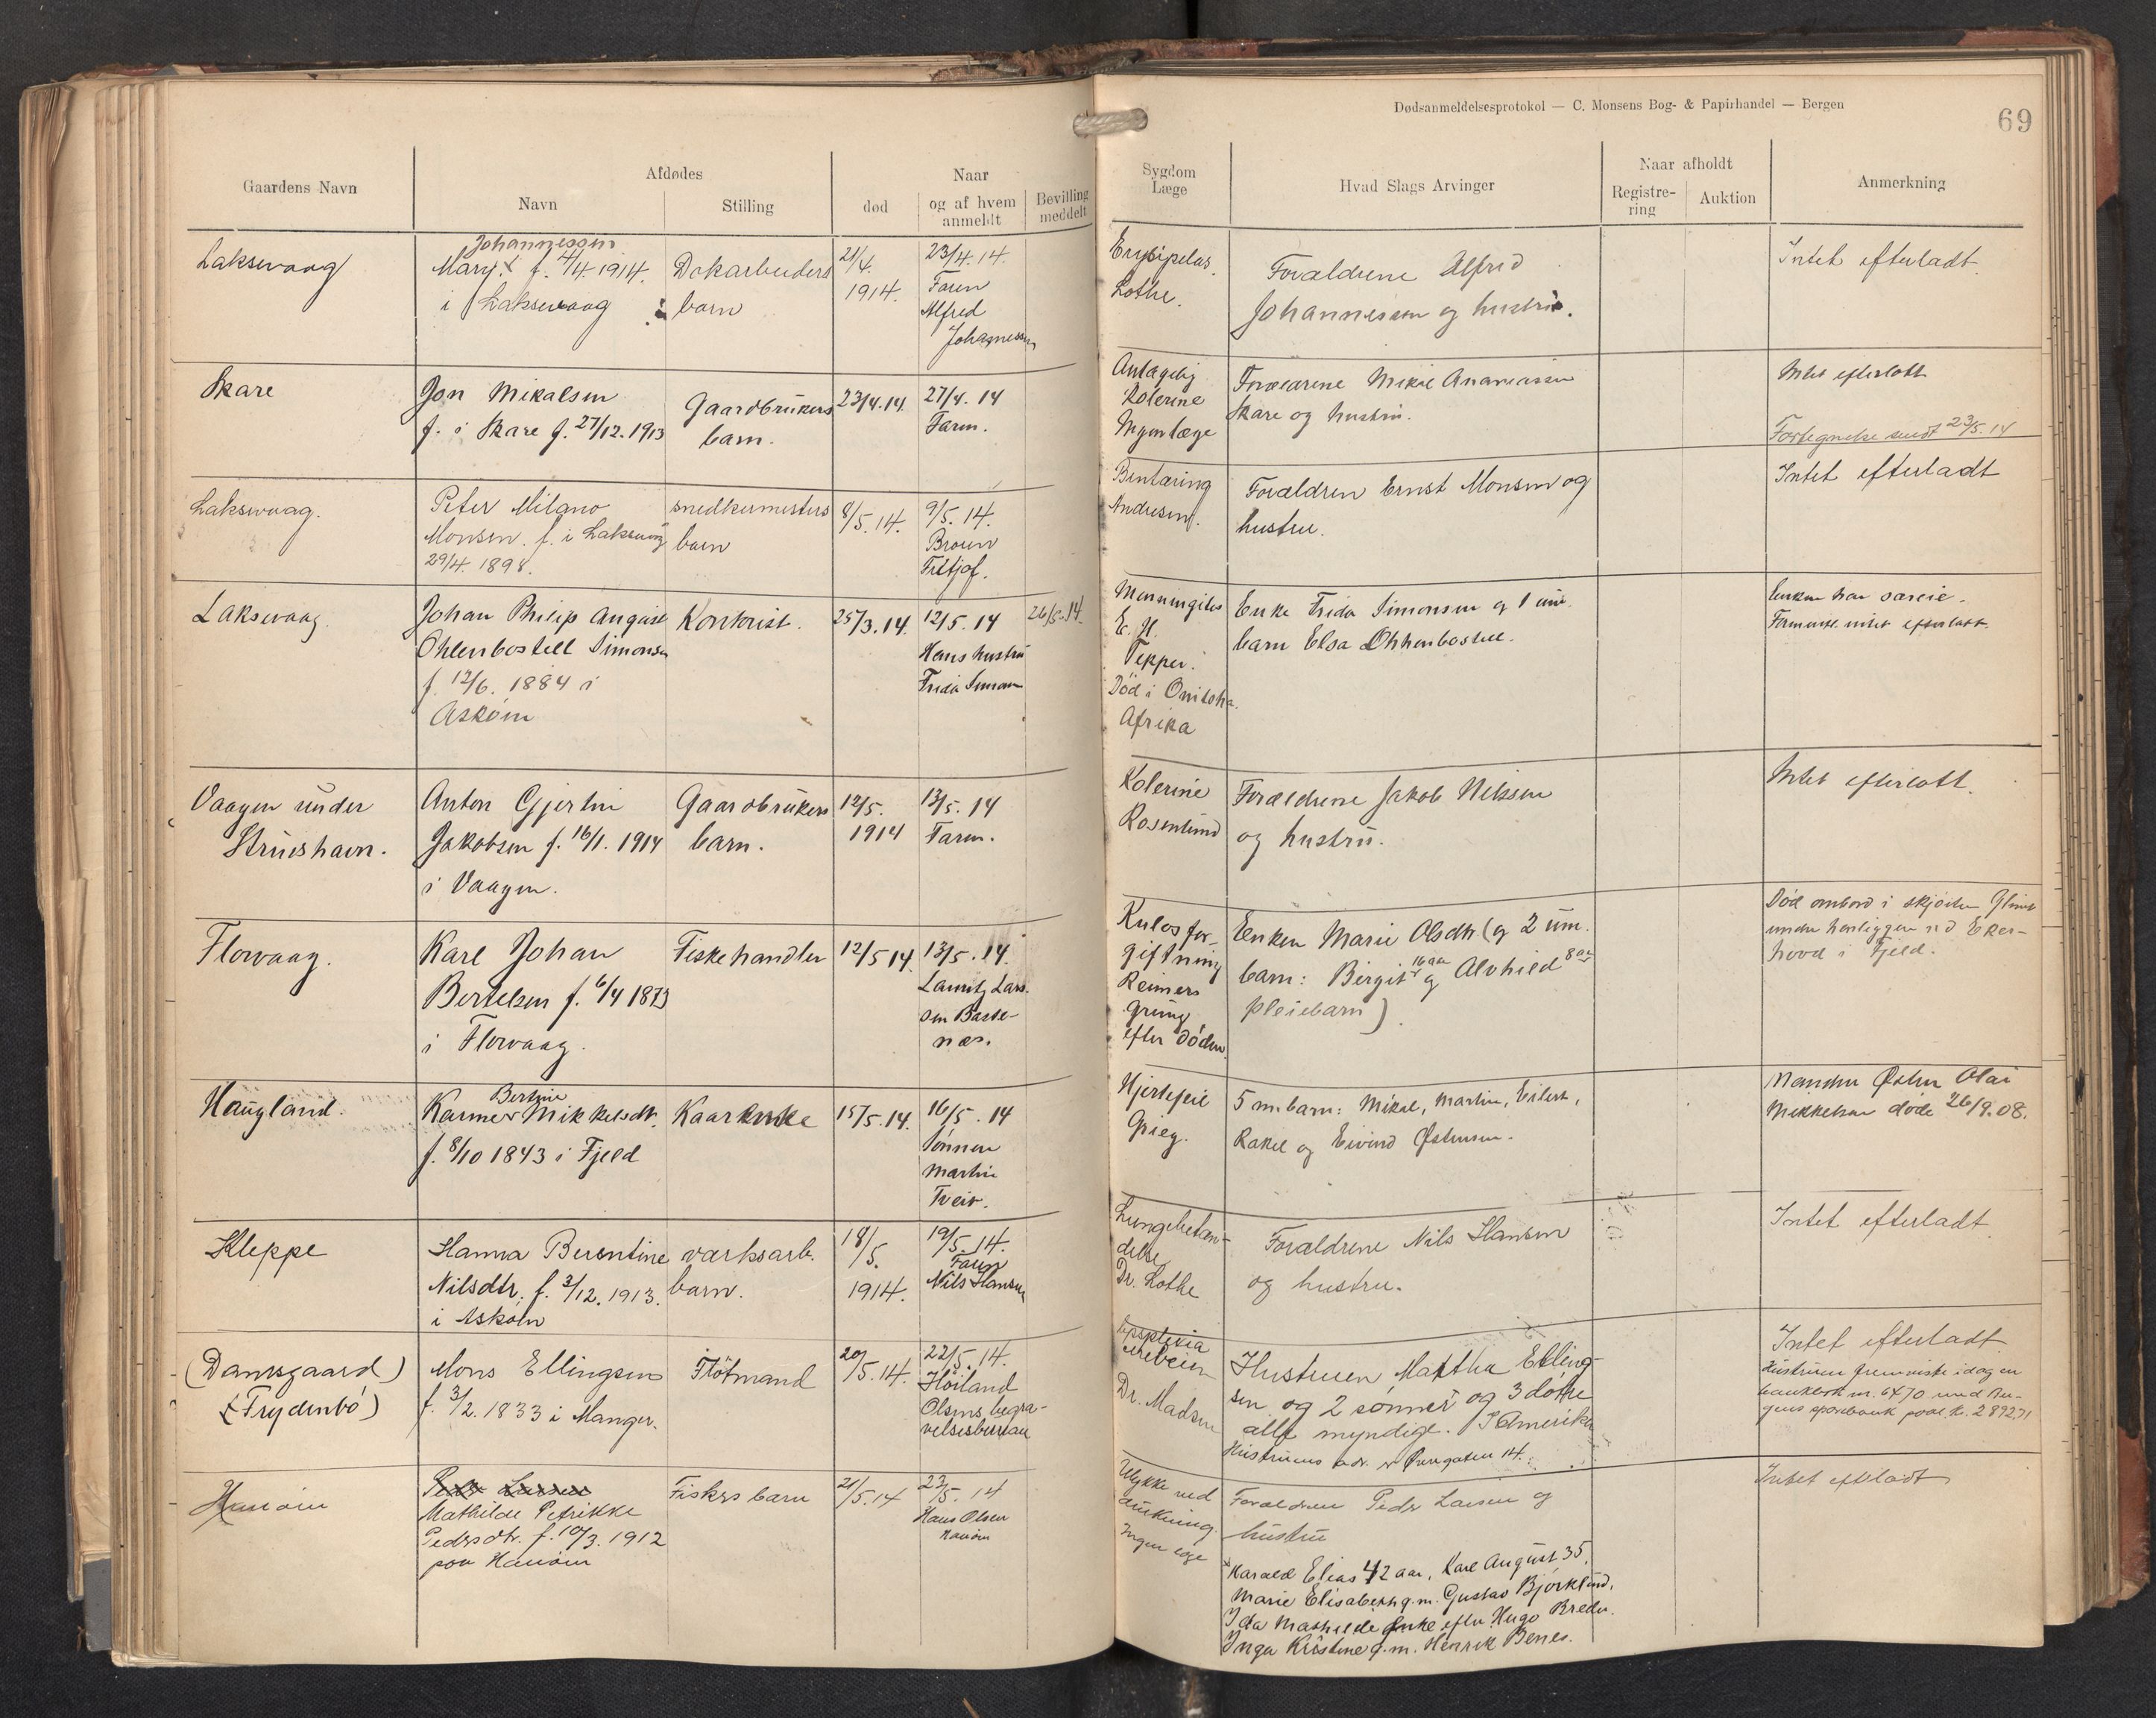 Dødsanmeldelsesprotokol — C. Monsens Bog- & Papirhandel — Bergen
69
Gaardens Navn
Afdødes
Navn
Stilling
død
Naar
og af hvem
anmeldt
Bevilling
meddelt
Sygdom
Læge
Hvad Slags Arvinger
Naar afholdt
Registre-
ring
Auktion
Anmerkning
Laksevaag
Johannessen
Mary. f. 4/4 1914.
i Laksevaag
Dokarbeiders
barn
21/4.
1914.
23/4. 14.
Faren
Alfred
Johannessen
Erysipelas.
Lothe.
Forældrene Alfred
Johannessen og hustru.
Intet efterladt.
Skare
Jon Mikalsen
f. i Skare f. 27/12. 1913
Gaardbrukers
barn.
23/4. 14.
27/4. 14
Faren.
Antagelig
Kolerine
Ingen læge
Forældrene Mikal Ananiassen
Skare og hustru.
Intet efterladt
Fortegnelse sendt 23/5. 14
Laksevaag.
Peter Milano
Monsen. f. i Laksevaag
29/4. 1898.
snedkermesters
barn
8/5. 14.
9/5. 14.
Broren
Fritjof.
Bentæring
Andresen.
Forældren Ernst Monsen og
hustru.
Intet efterladt
Laksevaag.
Johan Philip August
Ohlenbostell Simonsen
f. 12/6. 1884 i
Askøen
Kontorist.
25/3. 14.
12/5. 14
Hans hustru
Frida Simonsen
26/5. 14.
Menningites
E. H.
Tepper.
Død i Onitsha.
Afrika
Enke Frida Simonsen og 1 um.
barn Elsa Ohlenbostell.
Enken har særeie.
Formentl. intet efterladt.
Vaagen under
Struershavn.
Anton Gjertin
Jakobsen f. 16/1. 1914
i Vaagen.
Gaardbrukers
barn.
12/5.
1914
13/5. 14
Faren.
Kolerine
Rosenlund
Forældrene Jakob Nilssen
og hustru.
Intet efterladt.
Florvaag.
Karl Johan
Bertelsen f. 6/4 1873
i Florvaag.
Fiskehandler
12/5 14.
13/5. 14.
Lauritz Lars-
sen Baste-
næs.
Kulosfor-
giftning
Reimers
Grung
efter døden.
Enken Marie Olsdtr (og 2 um.
barn: Birgit 16 aar og Alvhild 8 aar
pleiebarn).
Død ombord i skjøiten Glimt
under henliggen ved Eker-
hovd i Fjeld.
Haugland.
Bertine
Karmer Mikkelsdt.
f. 8/10 1843 i Fjeld
Kaarenke
15/5. 14.
16/5. 14
Sønnen
Martin
Tveit.
Hjertefeil
Grieg.
5 m. barn: Mikal, Martin, Eilert,
Rakel og Eivind Østensen.
Manden Østen Olai
Mikkelsen døde 26/9. 08.
Kleppe
Hanna Berentine
Nilsdtr. f. 3/12. 1913.
i Askøen
værksarb.
barn.
18/5.
1914.
19/5. 14.
Faren
Nils Hansen
Lungebetæn-
delse
Dr. Lothe
Forældrene Nils Hansen
og hustru.
Intet efterladt.
(Damsgaard)
(Frydenbø)
Mons Ellingsen
f. 3/2. 1833 i Manger.
Fløtmand
20/5. 14.
22/5. 14.
Høiland
Olsens begra-
velsesbureau
Dr. Madsen
Hustruen Martha Elling-
sen og 2 sønner og 3 døtre
alle myndige. I Amerika
Hustruens adr. er Øvregaten 14.
Intet efterladt.
Hustruen fremviste idag en
bankbok nr. 6470 med Ber-
gens sparebank paal. kr. 2892,71
Hanøen
Peder Larsen
Mathilde Petrikke
Pedersdtr. f. 10/3. 1912
paa Hanøen
Fiskers barn
21/5. 14
23/5. 14
Hans Olsen
Hanøen
Ulykke ved
drukning.
Ingen læge
Forældrene Peder Larsen og
hustru
Intet efterladt
Harald Elias 42 aar, Karl August 35,
Marie Elisabeth g. m. Gustav Bjørklund,
Ida Mathilde enke efter Hugo Breder.
Inga Kristine g. m. Henrik Benes.